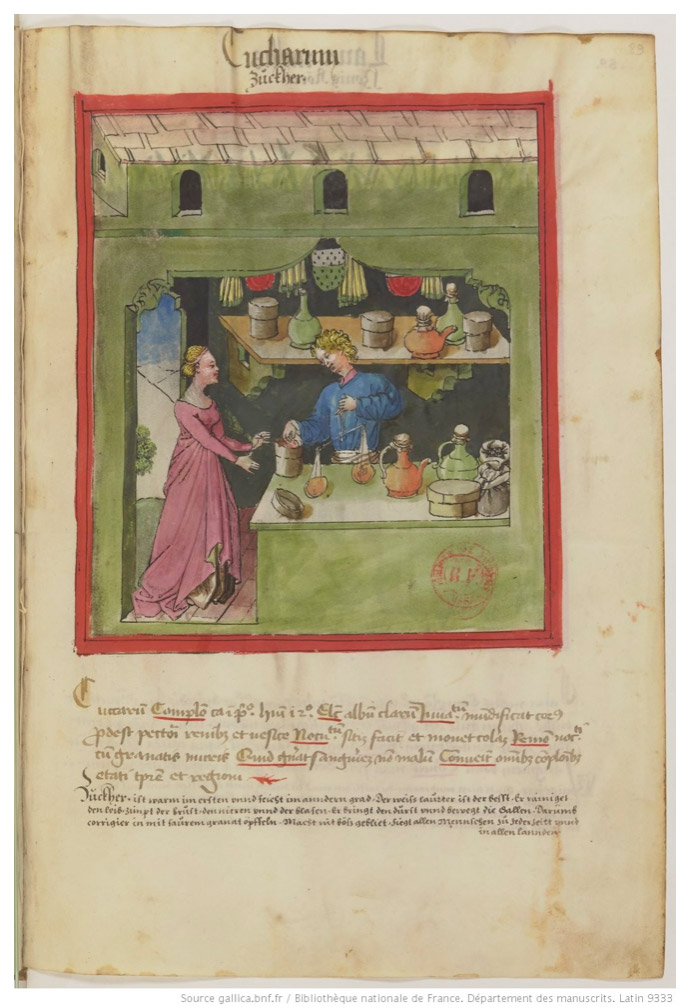 Cucharum
Zuckher.
89
R.F.
Cuccarū Complō ca i p̄º. hūi i 2º. Elc̄ albū clarū Iuua.tū mūdificat corꝰ
ꝓdest pectori renibꝫ et vesice Nocu.tū sitiȝ facit et mouet colaȝ Remo noc.tī
cū granatis muzis Quid gn̄at sanguīeȝ nō malum Conueīt om̄ibꝫ cōplōibꝫ
Etati tp̄ri et regioni
Zuckher. ist warm im ersten vnnd feicht im anndern grad. Der weiss lautter ist der besst. Er rainiget
den leib. Zimpt der brust. den nieren vnnd der blasen. Er bringt den durst vnnd bewegt die Gallen. Darumb
corrigier in mit saurem granat öpffeln. Macht nit böss gebliet. fiegt allen Mennschen zu Jeder Zeitt vnnd
in allen lannden
Source gallica.bnf.fr / Bibliothèque nationale de France. Département des manuscrits. Latin 9333